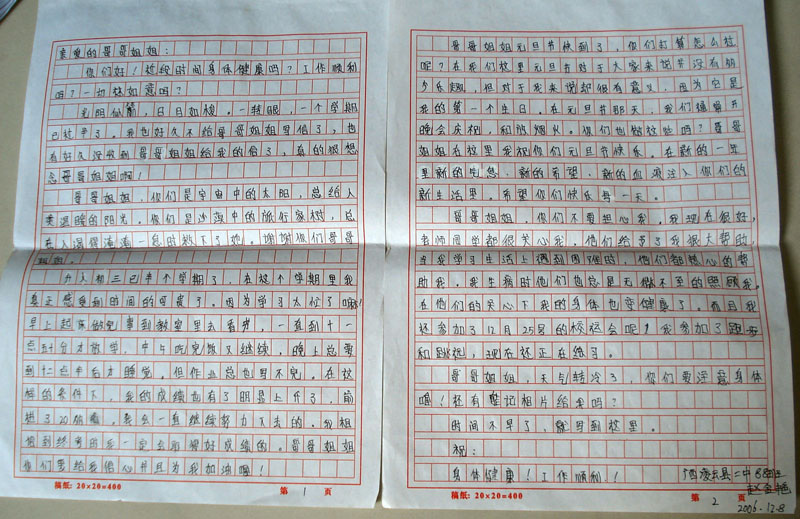 亲爱的哥哥姐姐:
你们好!这段时间身体健康吗?工作顺利
吗?一切如意吗?
光阴似箭,日月如梭。一转眼,一个学期
已过半了。我也好久不给哥哥姐姐写信了,也
有好久没收到哥哥姐姐给我的信了,真的很想
念哥哥姐姐啊!
哥哥姐姐,你们是宇宙中的太阳,总给人
类温暖的阳光。你们是沙漠中的旅行家树,总
在人渴得奄奄一息时救下了她。谢谢你们哥哥
姐姐。
升入初三已半个学期了,在这个学期里我
真正感受到时间的可贵了。因为学习太忙了嘛!
早上起床做完事到教室里去看书,一直到十一
点五十分才放学,中午吃完饭又继续。晚上总要
到十二点半后才睡觉。但作业总也写不完。在这
样的条件下,我的成绩也有了明显上升了,前
进了20名。我会一直继续努力下去的。我相
信到终考时我一定会取得好成绩的。哥哥姐姐
你们要给我信心并且为我加油喔!
稿纸:20×20=400
第 1 页
哥哥姐姐元旦节快到了,你们打算怎么过
呢?在我们这里元旦节对于大家来说并没有的
多乐趣,但对于我来说却很有意义,因为它是
我的第一个生日。在元旦节那天,我们播着开
晚会庆祝,和放烟火。你们也做这些吗?哥哥
姐姐在这里我祝你们元旦节快乐。在新的一年
里新的气息、新的希望、新的血液注入你们的
新生活里。希望你们快乐每一天。
哥哥姐姐,你们不要担心我,我现在很好,
老师同学都很关心我,他们给予了我很大帮助,
当我学习生活上遇到困难时,他们都热心的帮
助我。我生病时他们也总是无微不至的照顾我,
在他们的关心下我的身体也变健康了。而且我
还参加了12月25号的校运会呢!我参加了跑步
和跳绳,现在还正在练习。
哥哥姐姐,天气转冷了,你们要注意身体
哦!还有登记相片给我吗?
时间不早了,就写到这里。
祝:
身体健康!工作顺利!
广西凌云县二中
2006.12.8
稿纸:20×20=400
第 2 页